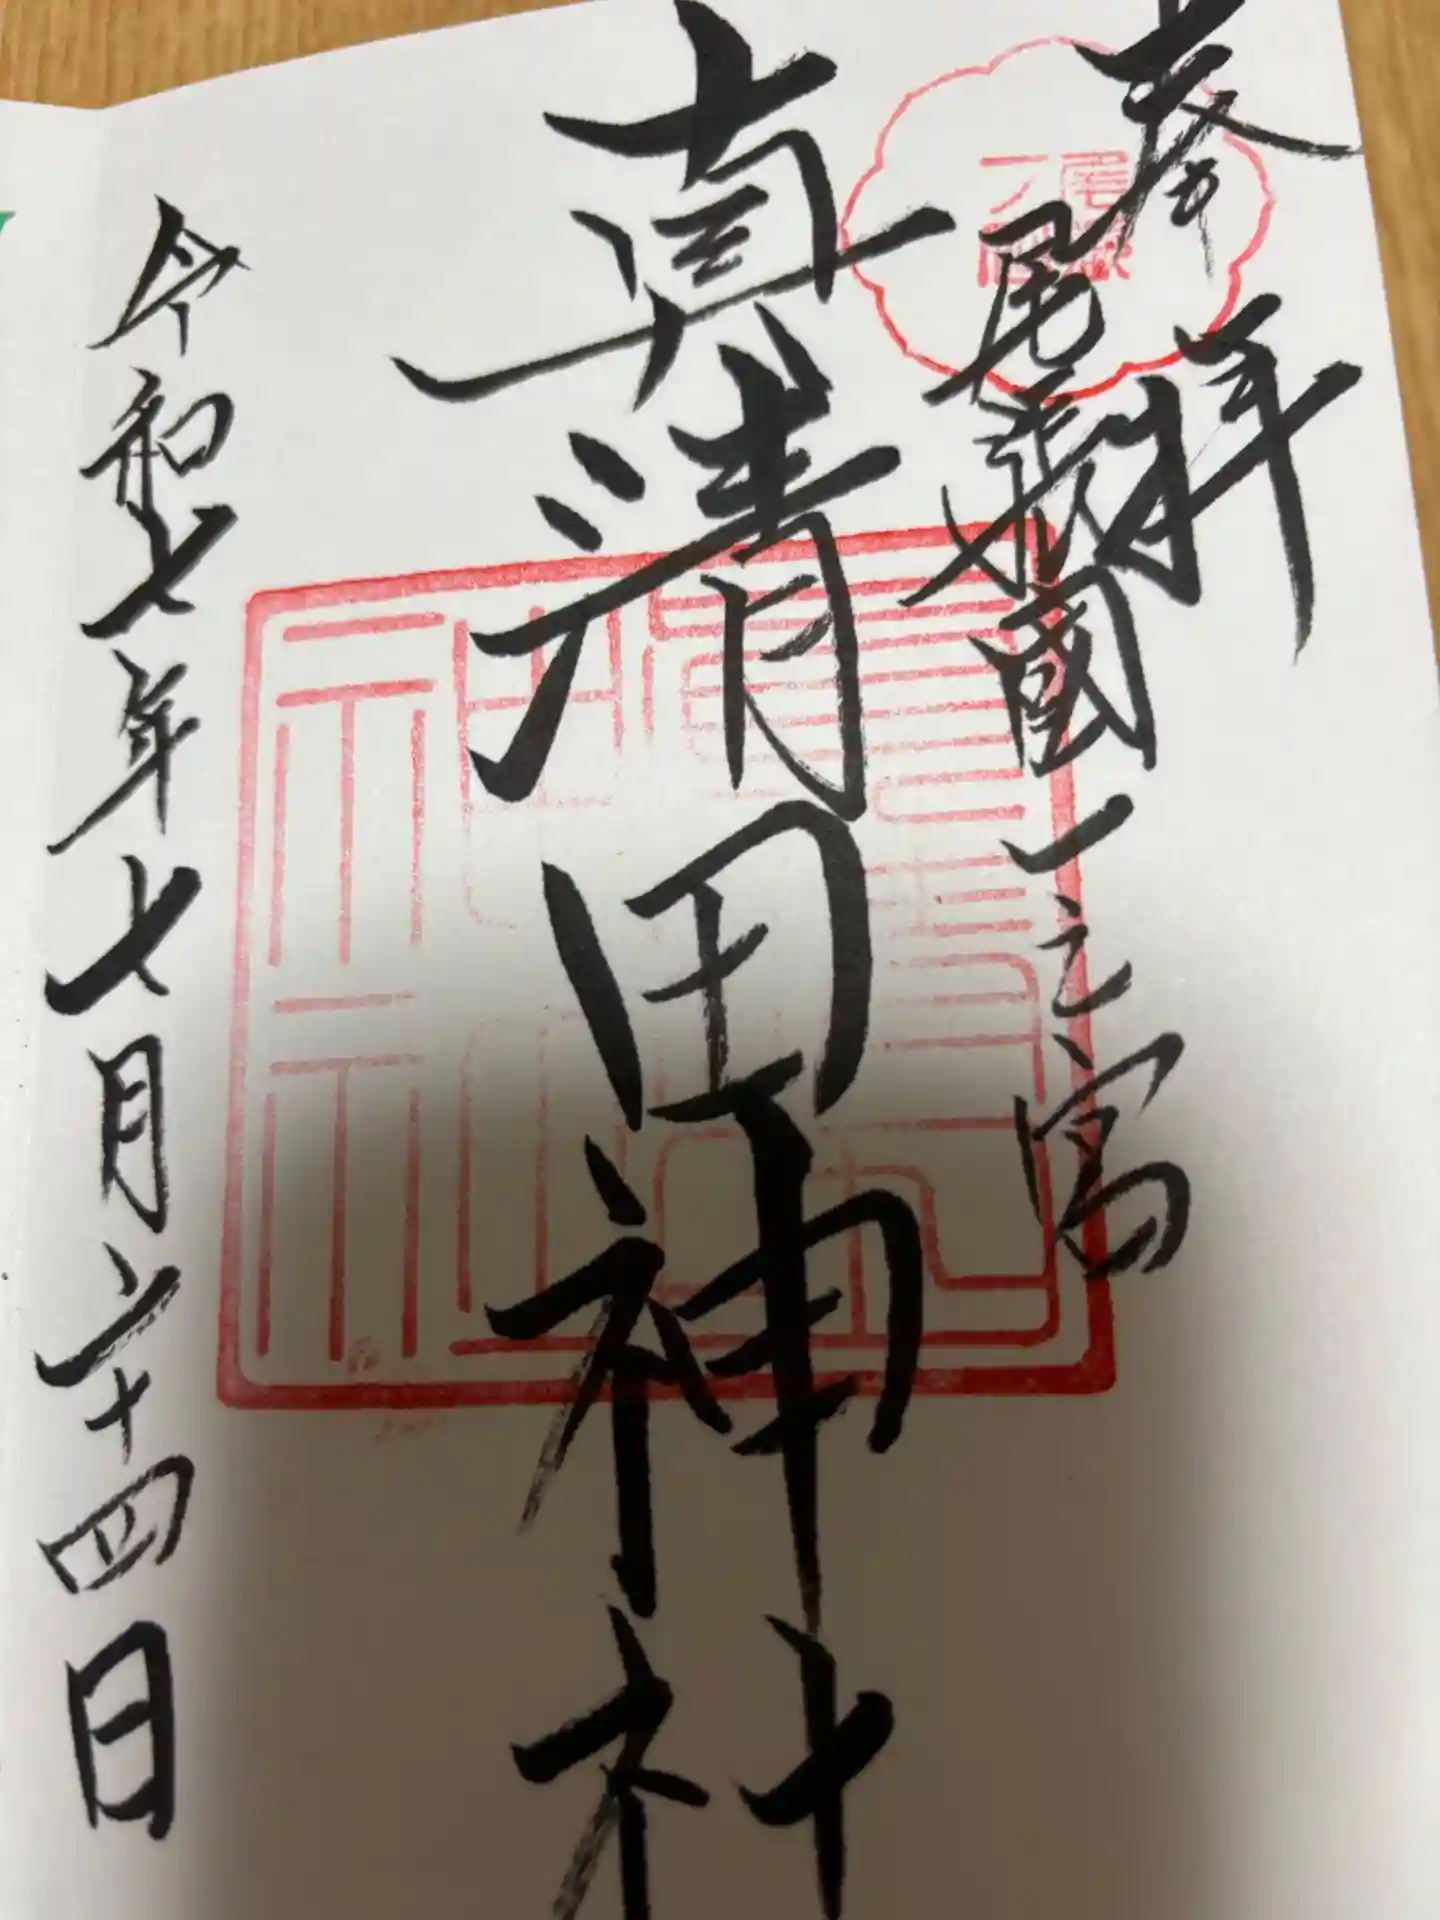 奉拝
尾張國一之宮
真清田神社
令和七年七月二十四日